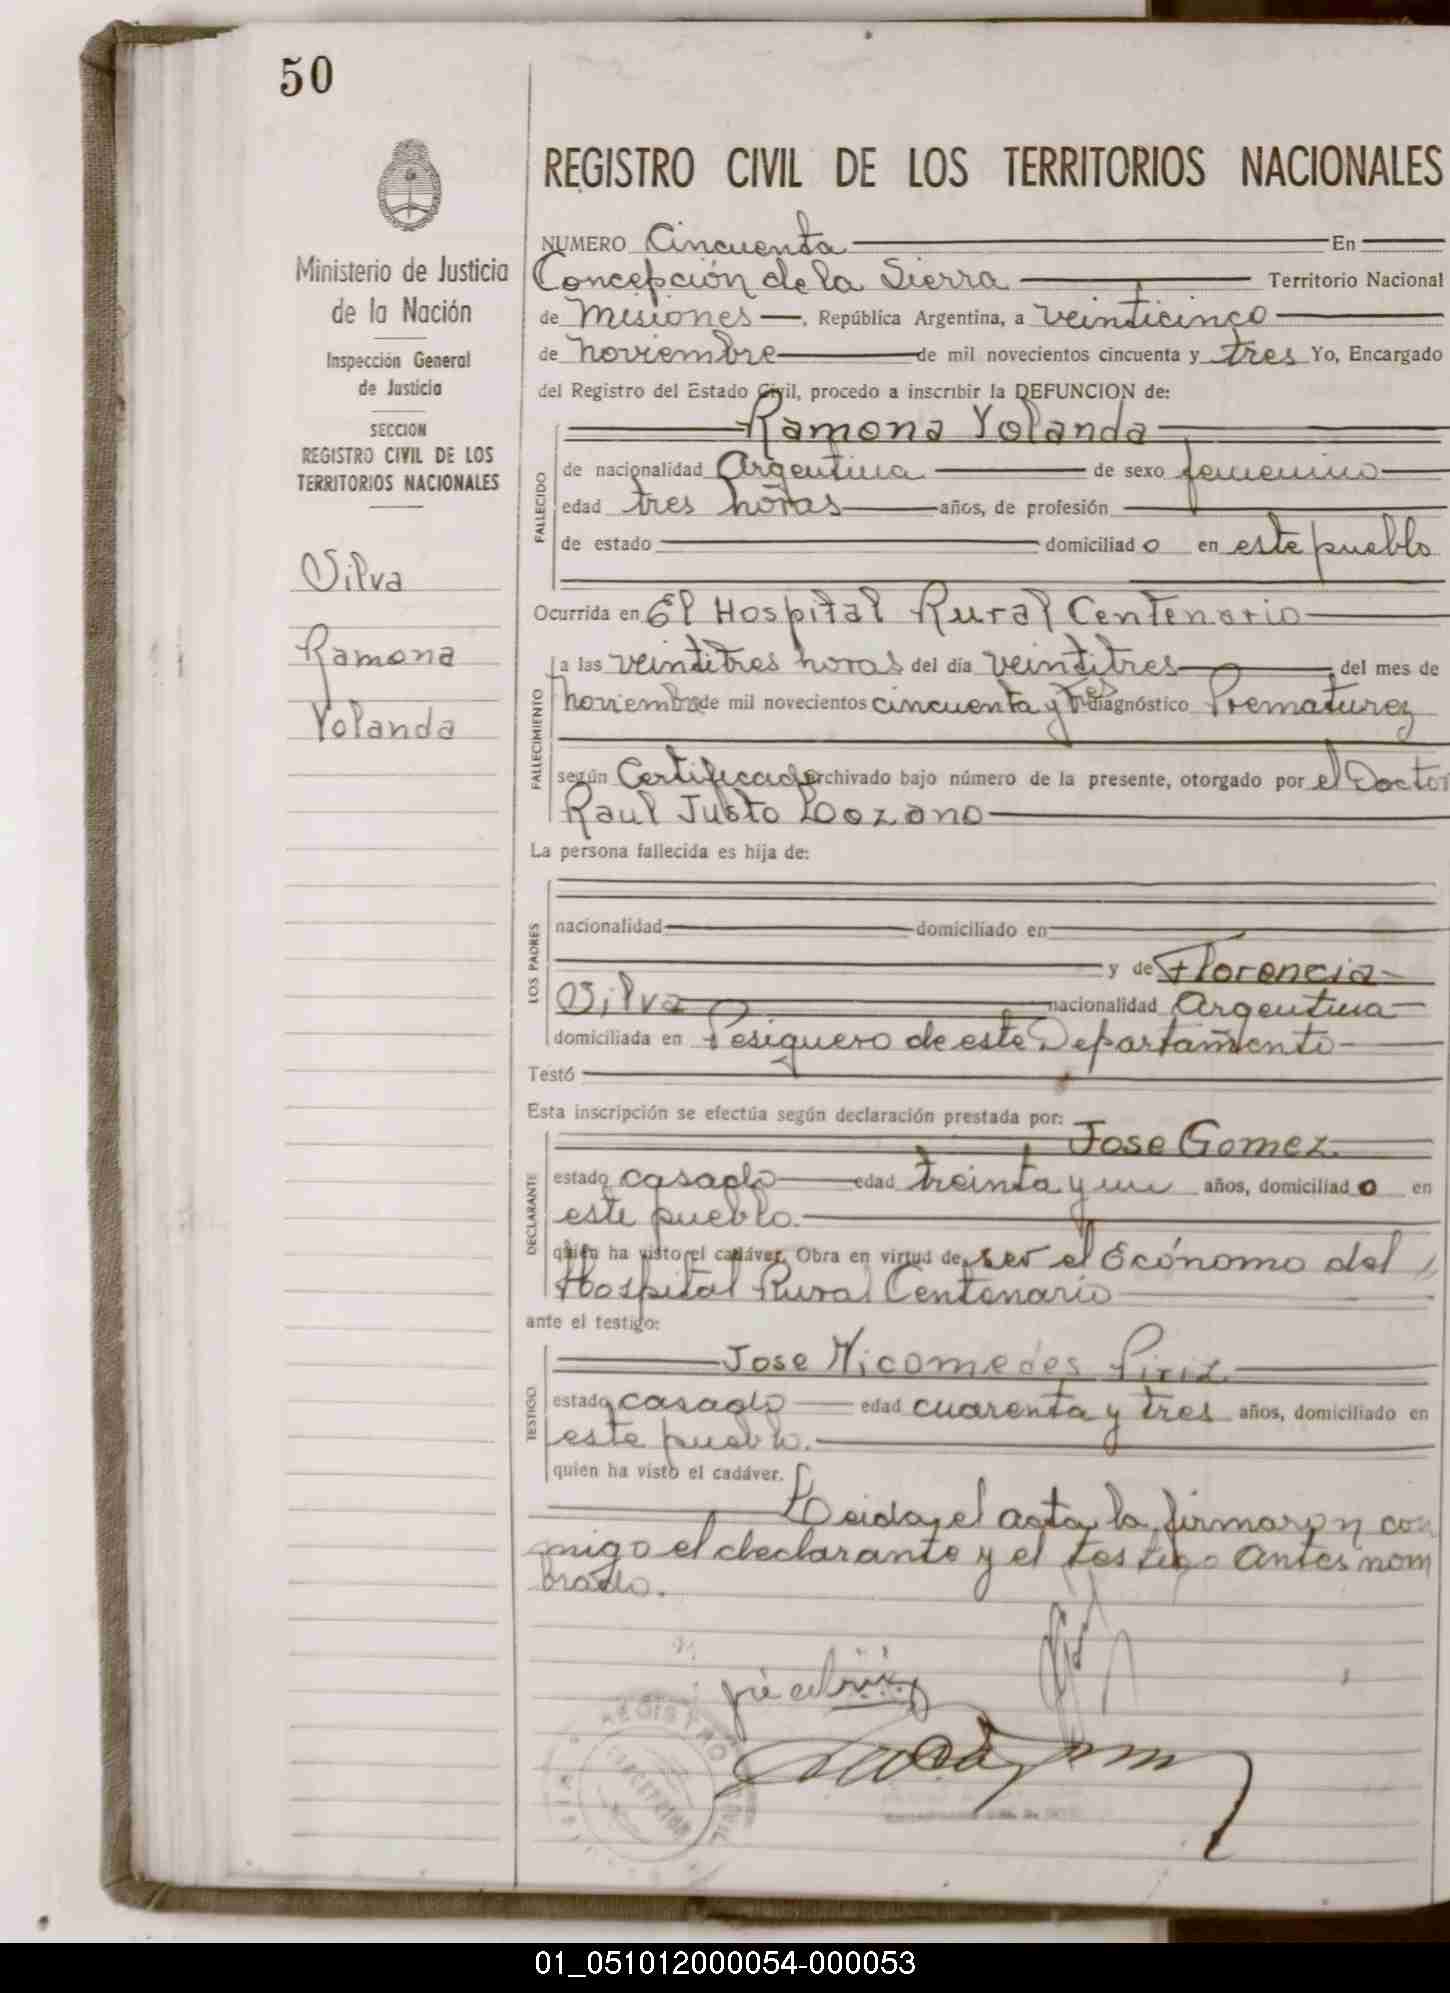 50
Ministerio de Justicia
de la Nación
Inspección General
de Justicia
SECCION
REGISTRO CIVIL DE LOS
TERRITORIOS NACIONALES
Silva
Ramona
Yolanda
REGISTRO CIVIL DE LOS TERRITORIOS NACIONALES
NUMERO Cincuenta En
Concepción de la Sierra Territorio Nacional
de Misiones, República Argentina, a veinticinco
de noviembre de mil novecientos cincuenta y tres Yo, Encargado
del Registro del Estado Civil, procedo a inscribir la DEFUNCION de:
Ramona Yolanda
FALLECIDO
de nacionalidad Argentina de sexo femenino
edad tres horas años, de profesión
de estado domiciliado en este pueblo
Ocurrida en El Hospital Rural Centenario
FALLECIMIENTO
a las veintitres horas del día veintitres del mes de
noviembre de mil novecientos cincuenta y tres diagnóstico Prematurez
según Certificado archivado bajo número de la presente, otorgado por el Doctor
Raul Justo Lozano
La persona fallecida es hija de:
LOS PADRES
nacionalidad domiciliado en
y de Florencia
Silva nacionalidad Argentina
domiciliada en Pesiguero de este Departamento
Testó
Esta inscripción se efectúa según declaración prestada por:
Jose Gomez
DECLARANTE
estado casado edad treinta y un años, domiciliado en
este pueblo.
quién ha visto el cadáver. Obra en virtud de ser el Ecónomo del
Hospital Rural Centenario
ante el testigo:
Jose Nicomedes Piriz
TESTIGO
estado casado edad cuarenta y tres años, domiciliado en
este pueblo.
quien ha visto el cadáver.
Leida el acta la firmaron con
migo el declarante y el testigo antes nom
brado.
REGISTRO CIVIL
01_051012000054-000053